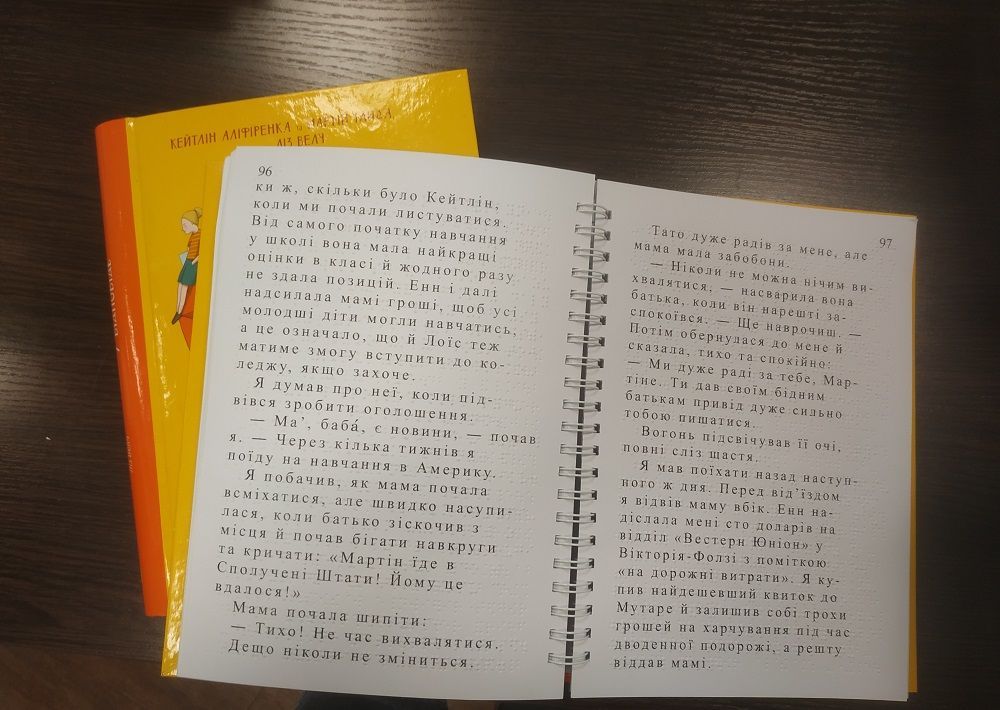 КЕЙТЛІН АЛІФІРЕНКА
ЛІЗ ВЕЛЧ
96
ки ж, скільки було Кейтлін,
коли ми почали листуватися.
Від самого початку навчання
у школі вона мала найкращі
оцінки в класі й жодного разу
не здала позицій. Енн і далі
надсилала мамі гроші, щоб усі
молодші діти могли навчатись,
а це означало, що й Лоїс теж
матиме змогу вступити до ко-
леджу, якщо захоче.
Я думав про неї, коли під-
вівся зробити оголошення.
— Ма’, баба́, є новини, — почав
я. — Через кілька тижнів я
поїду на навчання в Америку.
Я побачив, як мама почала
всміхатися, але швидко насупи-
лася, коли батько зіскочив з
місця й почав бігати навкруги
та кричати: «Мартін їде в
Сполучені Штати! Йому це
вдалося!»
Мама почала шипіти:
— Тихо! Не час вихвалятися.
Дещо ніколи не зміниться.
97
Тато дуже радів за мене, але
мама мала забобони.
— Ніколи не можна нічим ви-
хвалятися, — насварила вона
батька, коли він нарешті за-
спокоївся. — Ще наврочиш. —
Потім обернулася до мене й
сказала, тихо та спокійно:
— Ми дуже раді за тебе, Мар-
тіне. Ти дав своїм бідним
батькам привід дуже сильно
тобою пишатися.
Вогонь підсвічував її очі,
повні сліз щастя.
Я мав поїхати назад наступ-
ного ж дня. Перед від’їздом
я відвів маму вбік. Енн на-
діслала мені сто доларів на
відділ «Вестерн Юніон» у
Вікторія-Фолзі з поміткою
«на дорожні витрати». Я ку-
пив найдешевший квиток до
Мутаре й залишив собі трохи
грошей на харчування під час
дводенної подорожі, а решту
віддав мамі.